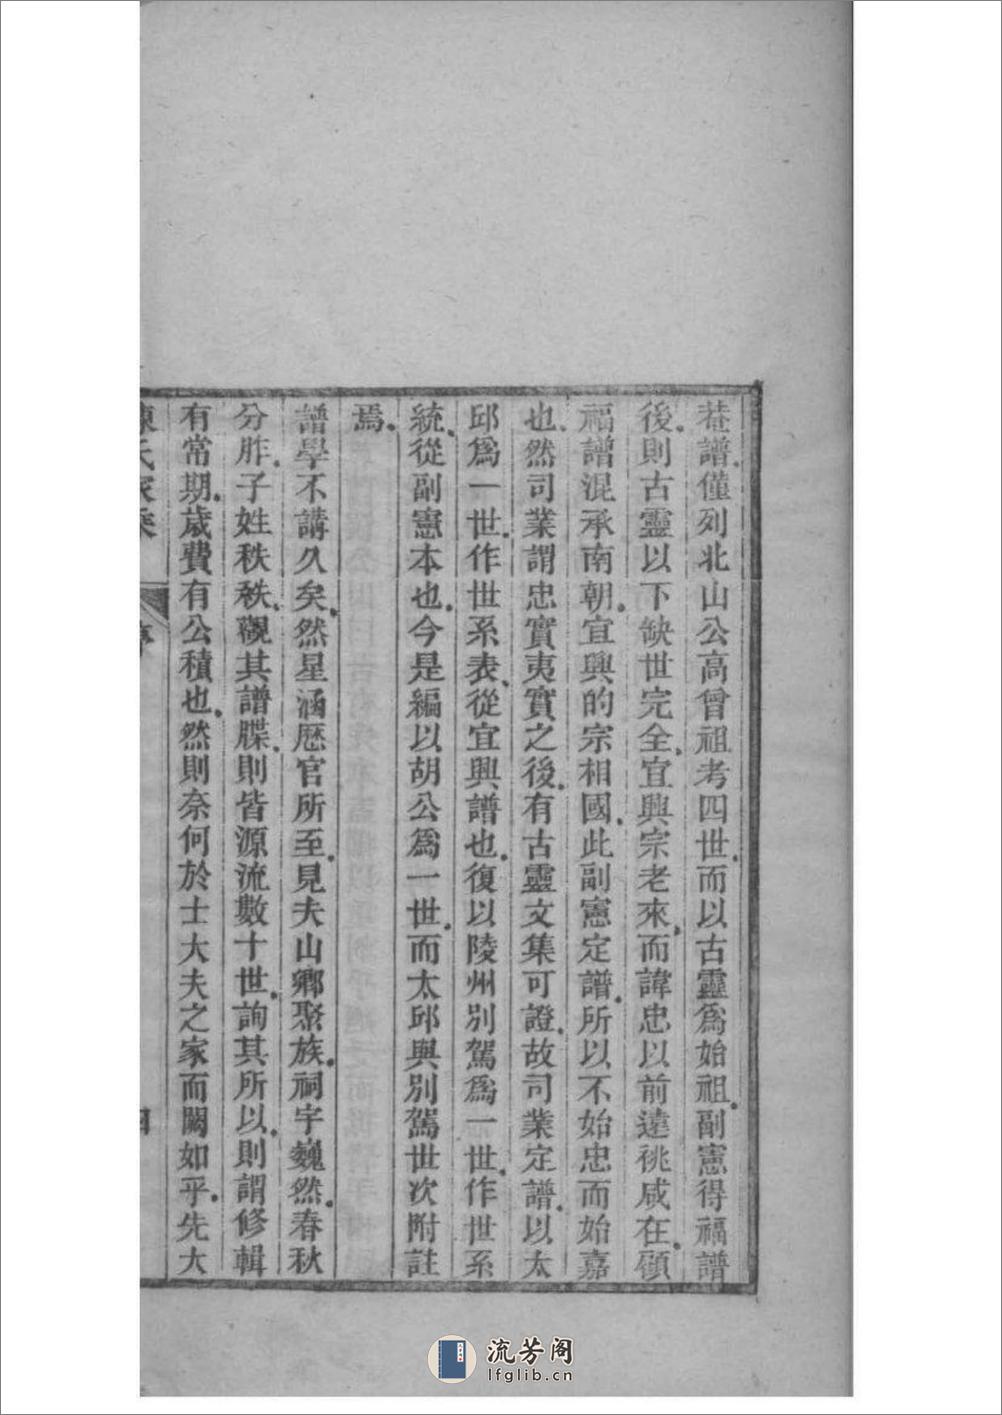 菴譜僅列北山公高曾祖考四世而以古靈爲始祖副憲得福譜
後則古靈以下缺世完全宜興宗老來而諱忠以前遠祧咸在頎
福譜混承南朝宜興的宗相國此副憲定譜所以不始忠而始嘉
也然司業謂忠實夷實之後有古靈文集可證故司業定譜以太
邱爲一世作世系表從宜興譜也復以陵州別駕爲一世作世系
統從副憲本也今是編以胡公爲一世而太邱與別駕世次附註
焉
譜學不講久矣然星涵歷官所至見夫山鄉聚族祠宇巍然春秋
分胙子姓秩秩觀其譜牒則皆源流數十世詢其所以則謂修輯
有常期歲費有公積也然則奈何於士大夫之家而闕如乎先大
陳氏家乘 序 四
流芳阁
lfglib.cn